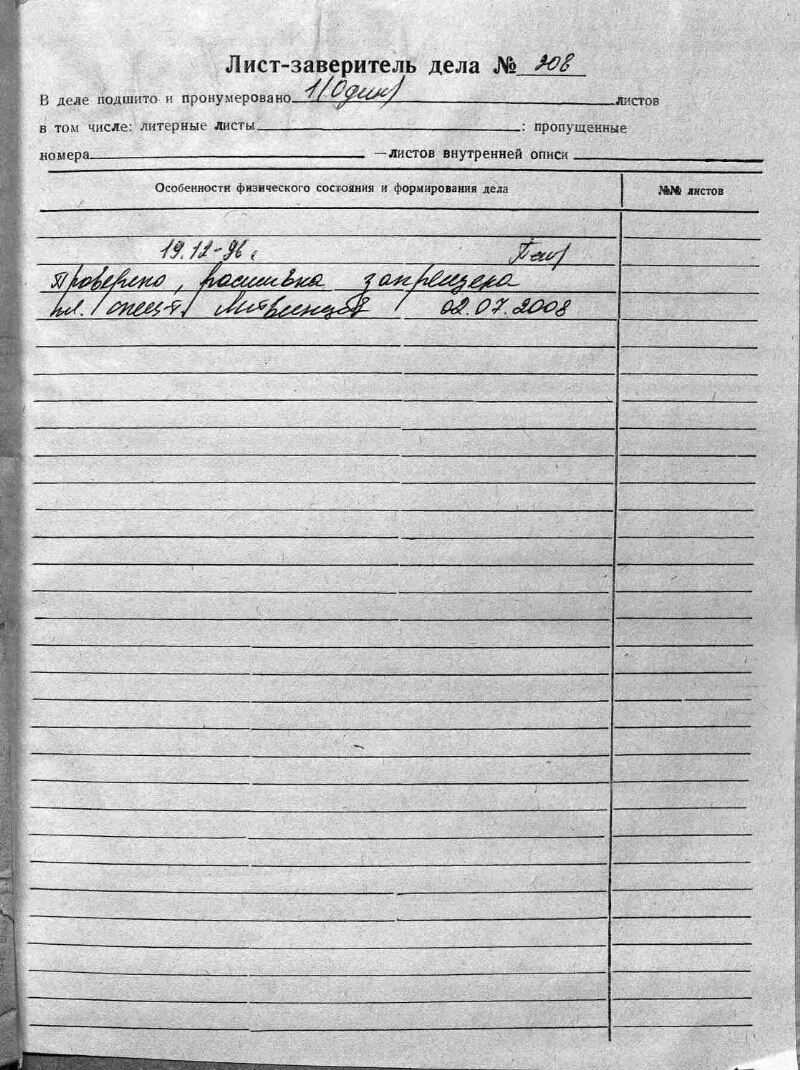 Лист-заверитель дела № 208
В деле подшито и пронумеровано 1 (Один) листов
в том числе: литерные листы : пропущенные
номера —листов внутренней описи
Особенности физического состояния и формирования дела №№ листов
19.12-96 г
Проверено, расшивка запрещена
02.07.2008